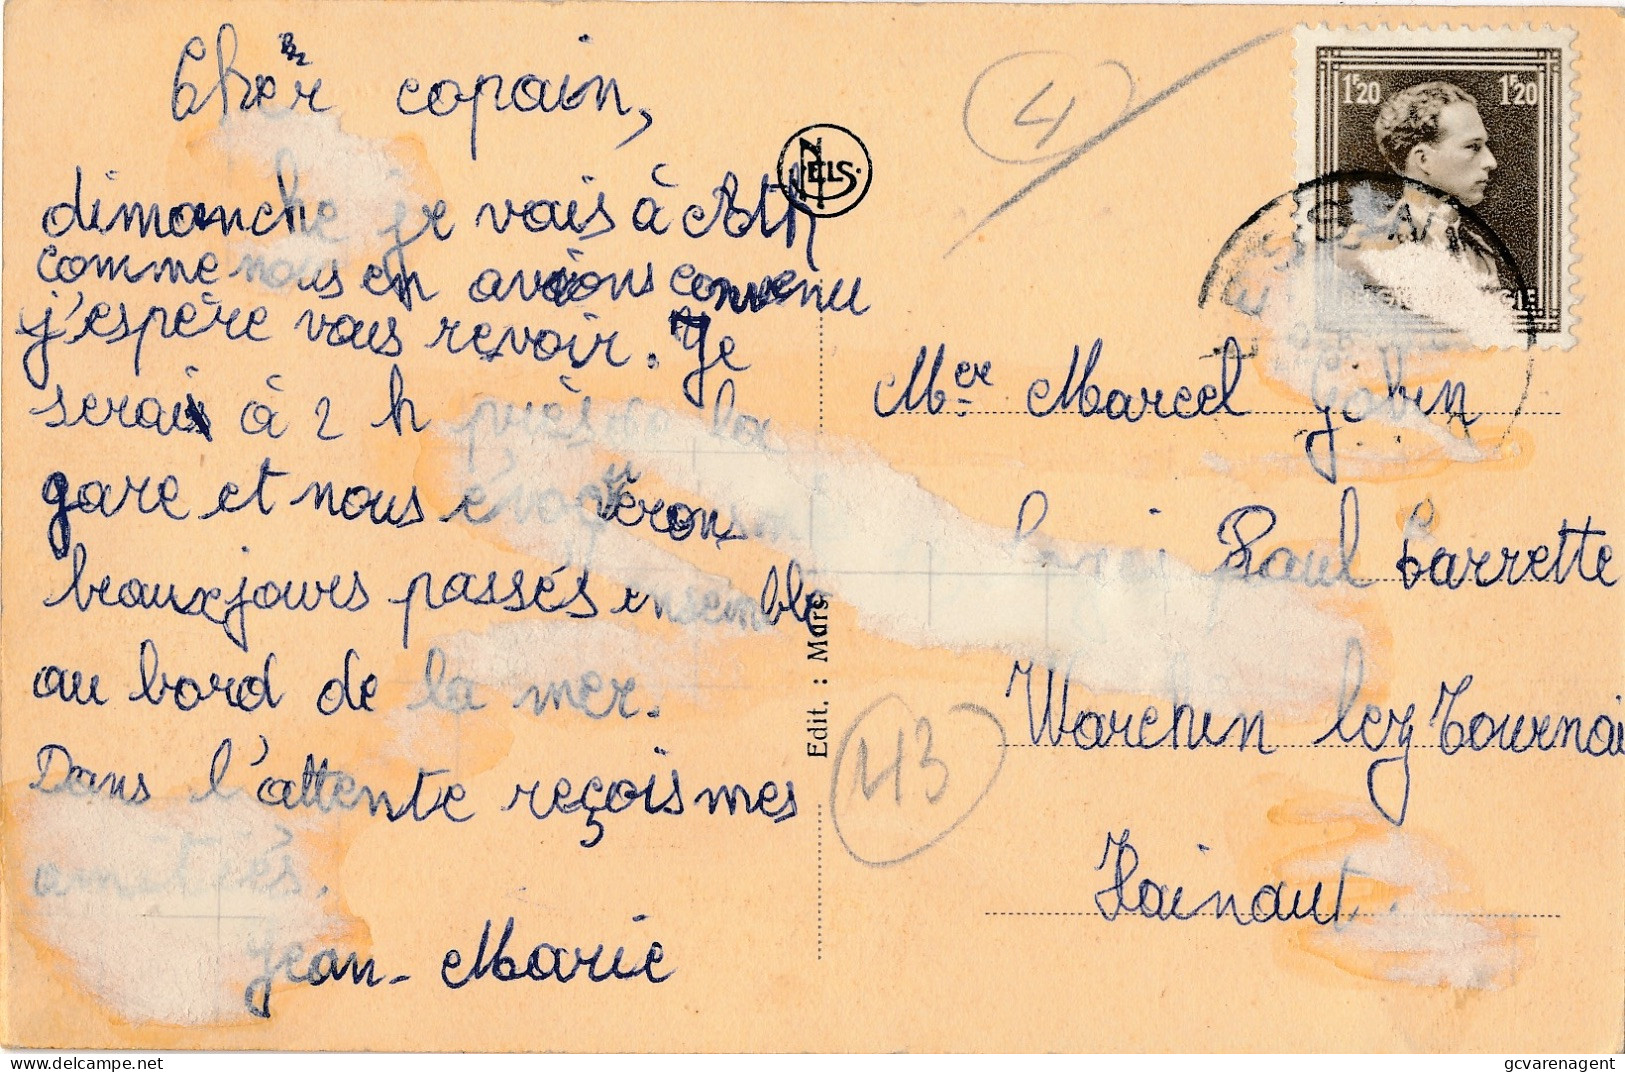 Cher copain,
dimanche je vais à Ath
comme nous en avions convenu
j'espère vous revoir. Je
serais à 2 h près de la
gare et nous évoquerons
beaux jours passés ensemble
au bord de la mer.
Dans l'attente reçois mes
amitiés.
Jean-Marie
NELS.
Edit. : Mars
4
43
1F20 1F20
Mer Marcel Gobin
Paul Larrette
Warchin lez Tournai
Hainaut.
gcvarenagent